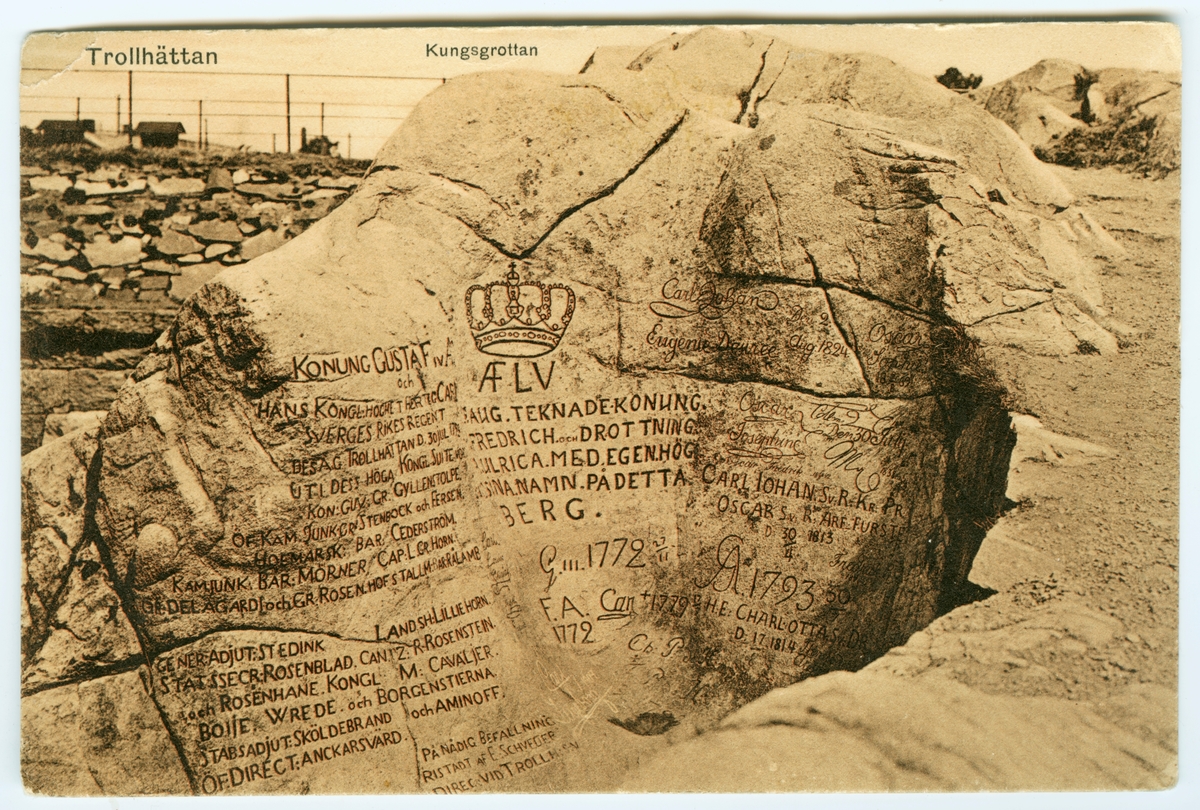 Trollhättan
Kungsgrottan
KONUNG GUSTAF IV A
och
HANS KONGL. HÖGHET HERTIG CARL
SVERGES RIKES REGENT
BESÅG TROLLHÄTTAN D. 30 JUL. 179
UTI DESS HÖGA KONGL SUITE
KON: GUV: GR. GYLLENSTOLPE,
ÖF. KAM. JUNK. GR: STENBOCK och FERSEN.
HOFMARSK: BAR. CEDERSTRÖM.
KAMJUNK. BAR. MÖRNER, CAP-L. GR. HORN.
GR DELAGARDI och GR. ROSEN. HOFSTALLM: BAR RÅLAMB
LANDSH: LILLIEHORN.
GENER: ADJUT: STEDINK
STATSSECR: ROSENBLAD. CANTZ: R-ROSENSTEIN.
och ROSENHANE. KONGL M. CAVALJER.
BOIJE, WREDE. och BORGENSTIERNA.
STABSADJUT: SKÖLDEBRAND och AMINOFF.
ÖF DIRECT: ANCKARSVÄRD.
PÅ NÅDIG BEFALLNING
RISTADT AF E SCHVEGER
DIREC VID TROLLH
ÆLV
AUG. TEKNADE. KONUNG.
FREDRICH. och DROTTNING
ULRICA. MED. EGEN. HÖG
SINA. NAMN. PÅ DETTA
BERG.
G. III. 1772
F. A.
1772
Can
1779
Ch. P
Carl Johan
Eugenie
Aug 1824
Oscar
Oscar
Josephine
Den 30 July
CARL JOHAN. Sv. R. Kr. PR
OSCAR Sv. R. ARF-FURSTE
D 30 1813
4
GA 1793
H. E. CHARLOTTA S. D
D. 17. 1814